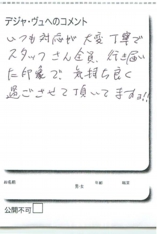 デジャ・ヴュへのコメント
いつも対応が大変丁寧で
スタッフさん全員、行き届い
た印象で、気持ち良く
過ごさせて頂いてますよ!!
お名前
男・女
年齢
職業
公開不可